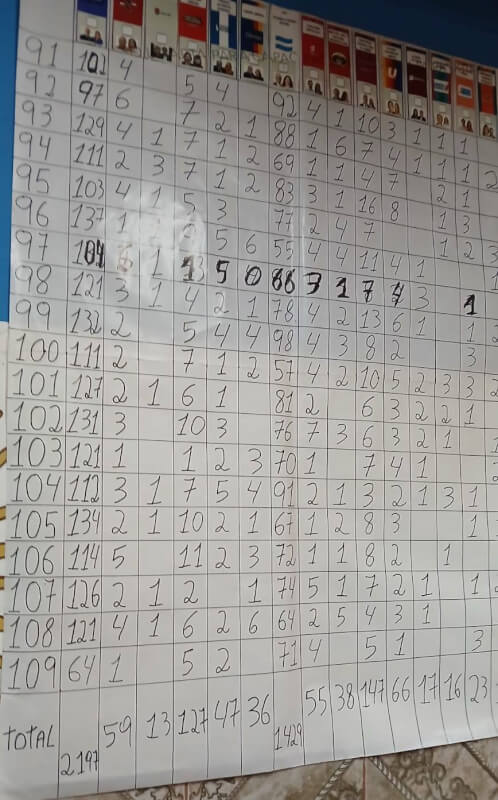 91 102 4 5 4 92 4 1 10 3 1 1 1
92 97 6 7 2 1 88 1 6 7 4 1 1 1 2
93 129 4 1 7 1 2 69 1 1 4 7 2 1
94 111 2 3 7 1 2 83 3 1 16 8 1 3
95 103 4 1 5 3 77 2 4 7 1 2 3
96 137 1 5 6 55 4 4 11 4 1 1
97 104 6 1 13 5 0 88 3 1 7 4 3 1
98 121 3 1 4 2 1 78 4 2 13 6 1 1 2
99 132 2 5 4 4 98 4 3 8 2 3
100 111 2 7 1 2 57 4 2 10 5 2 3 3 2
101 127 2 1 6 1 81 2 6 3 2 2 1
102 131 3 10 3 76 7 3 6 3 2 1 1
103 121 1 1 2 3 70 1 7 4 1 2
104 112 3 1 7 5 4 91 2 1 3 2 1 3 1
105 134 2 1 10 2 1 67 1 2 8 3 1 1
106 114 5 11 2 3 72 1 1 8 2 1
107 126 2 1 2 1 74 5 1 7 2 1 1
108 121 4 1 6 2 6 64 2 5 4 3 1
109 64 1 5 2 71 4 5 1 3
TOTAL 2197 59 13 127 47 36 1429 55 38 147 66 17 16 23